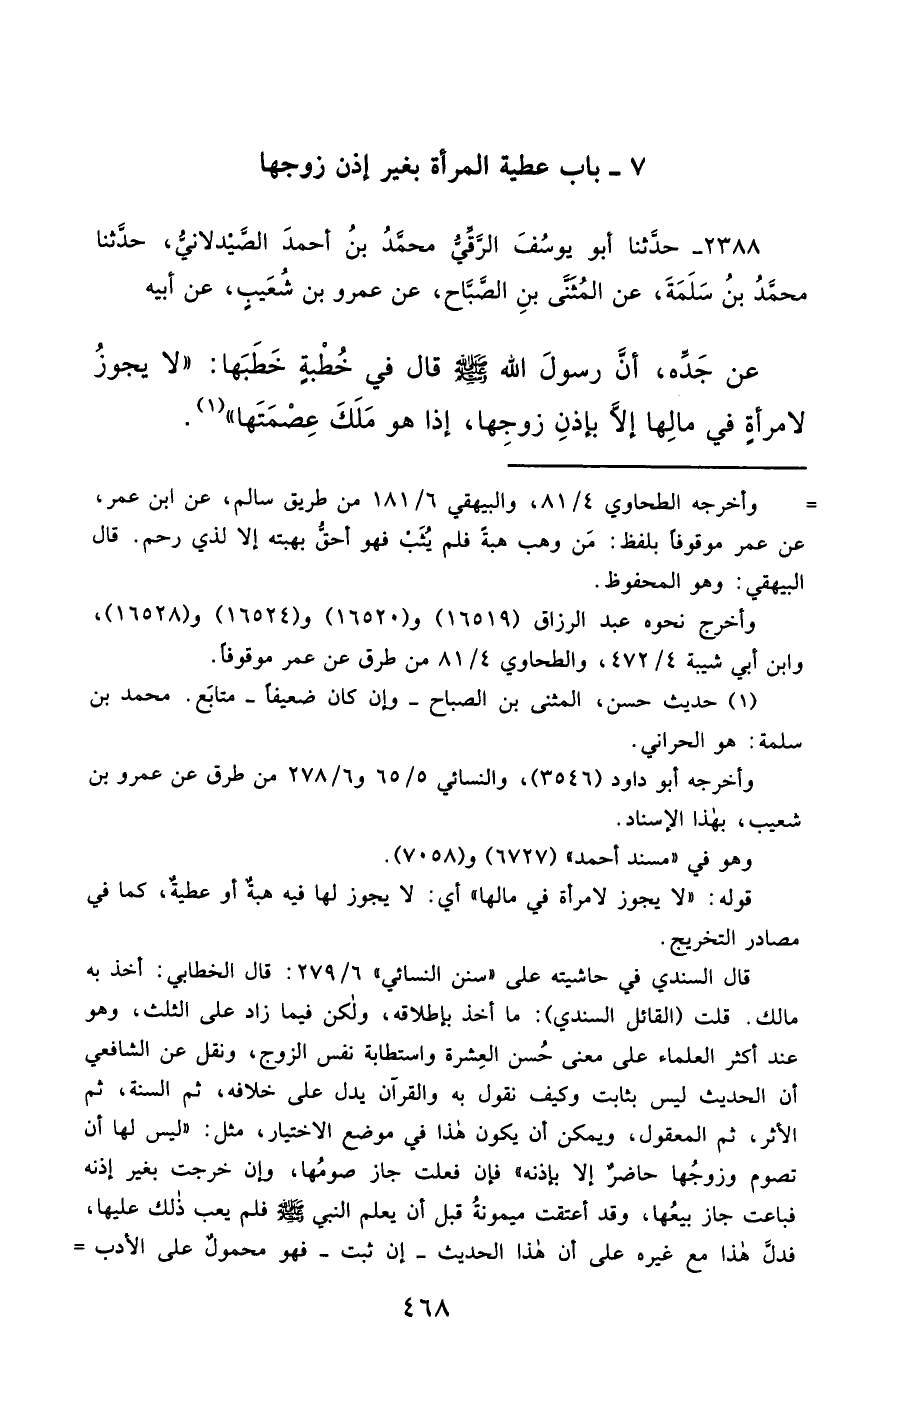 ٧ ـ باب عطية المرأة بغير إذن زوجها
٢٣٨٨ـ حدَّثنا أبو يوسُفَ الرَّقِّيُّ محمَّدُ بنُ أحمدَ الصَّيْدلانيُّ، حدَّثنا
محمَّدُ بنُ سَلَمَةَ، عن المُثَنَّى بنِ الصَّبَّاح، عن عمرو بن شُعَيبٍ، عن أبيه
عن جَدِّه، أنَّ رسولَ الله ﷺ قال في خُطْبةٍ خَطَبَها: «لا يجوزُ
لامرأةٍ في مالِها إلاَّ بإذنِ زوجِها، إذا هو مَلَكَ عِصْمَتَها»(١).
= وأخرجه الطحاوي ٨١/٤، والبيهقي ١٨١/٦ من طريق سالم، عن ابن عمر،
عن عمر موقوفاً بلفظ: مَن وهب هبةً فلم يُثَبْ فهو أحقُّ بهبته إلا لذي رحم. قال
البيهقي: وهو المحفوظ.
وأخرج نحوه عبد الرزاق (١٦٥١٩) و(١٦٥٢٠) و(١٦٥٢٤) و(١٦٥٢٨)،
وابن أبي شيبة ٤٧٢/٤، والطحاوي ٨١/٤ من طرق عن عمر موقوفاً.
(١) حديث حسن، المثنى بن الصباح ـ وإن كان ضعيفاً ـ متابَع. محمد بن
سلمة: هو الحراني.
وأخرجه أبو داود (٣٥٤٦)، والنسائي ٦٥/٥ و٢٧٨/٦ من طرق عن عمرو بن
شعيب، بهٰذا الإسناد.
وهو في «مسند أحمد» (٦٧٢٧) و(٧٠٥٨).
قوله: «لا يجوز لامرأة في مالها» أي: لا يجوز لها فيه هبةٌ أو عطيةٌ، كما في
مصادر التخريج.
قال السندي في حاشيته على «سنن النسائي» ٢٧٩/٦: قال الخطابي: أخذ به
مالك. قلت (القائل السندي): ما أخذ بإطلاقه، ولٰكن فيما زاد على الثلث، وهو
عند أكثر العلماء على معنى حُسن العِشرة واستطابة نفس الزوج، ونقل عن الشافعي
أن الحديث ليس بثابت وكيف نقول به والقرآن يدل على خلافه، ثم السنة، ثم
الأثر، ثم المعقول، ويمكن أن يكون هٰذا في موضع الاختيار، مثل: «ليس لها أن
تصوم وزوجُها حاضرٌ إلا بإذنه» فإن فعلت جاز صومُها، وإن خرجت بغير إذنه
فباعت جاز بيعُها، وقد أعتقت ميمونةُ قبل أن يعلم النبي ﷺ فلم يعب ذٰلك عليها،
فدلَّ هٰذا مع غيره على أن هٰذا الحديث ـ إن ثبت ـ فهو محمولٌ على الأدب =
٤٦٨